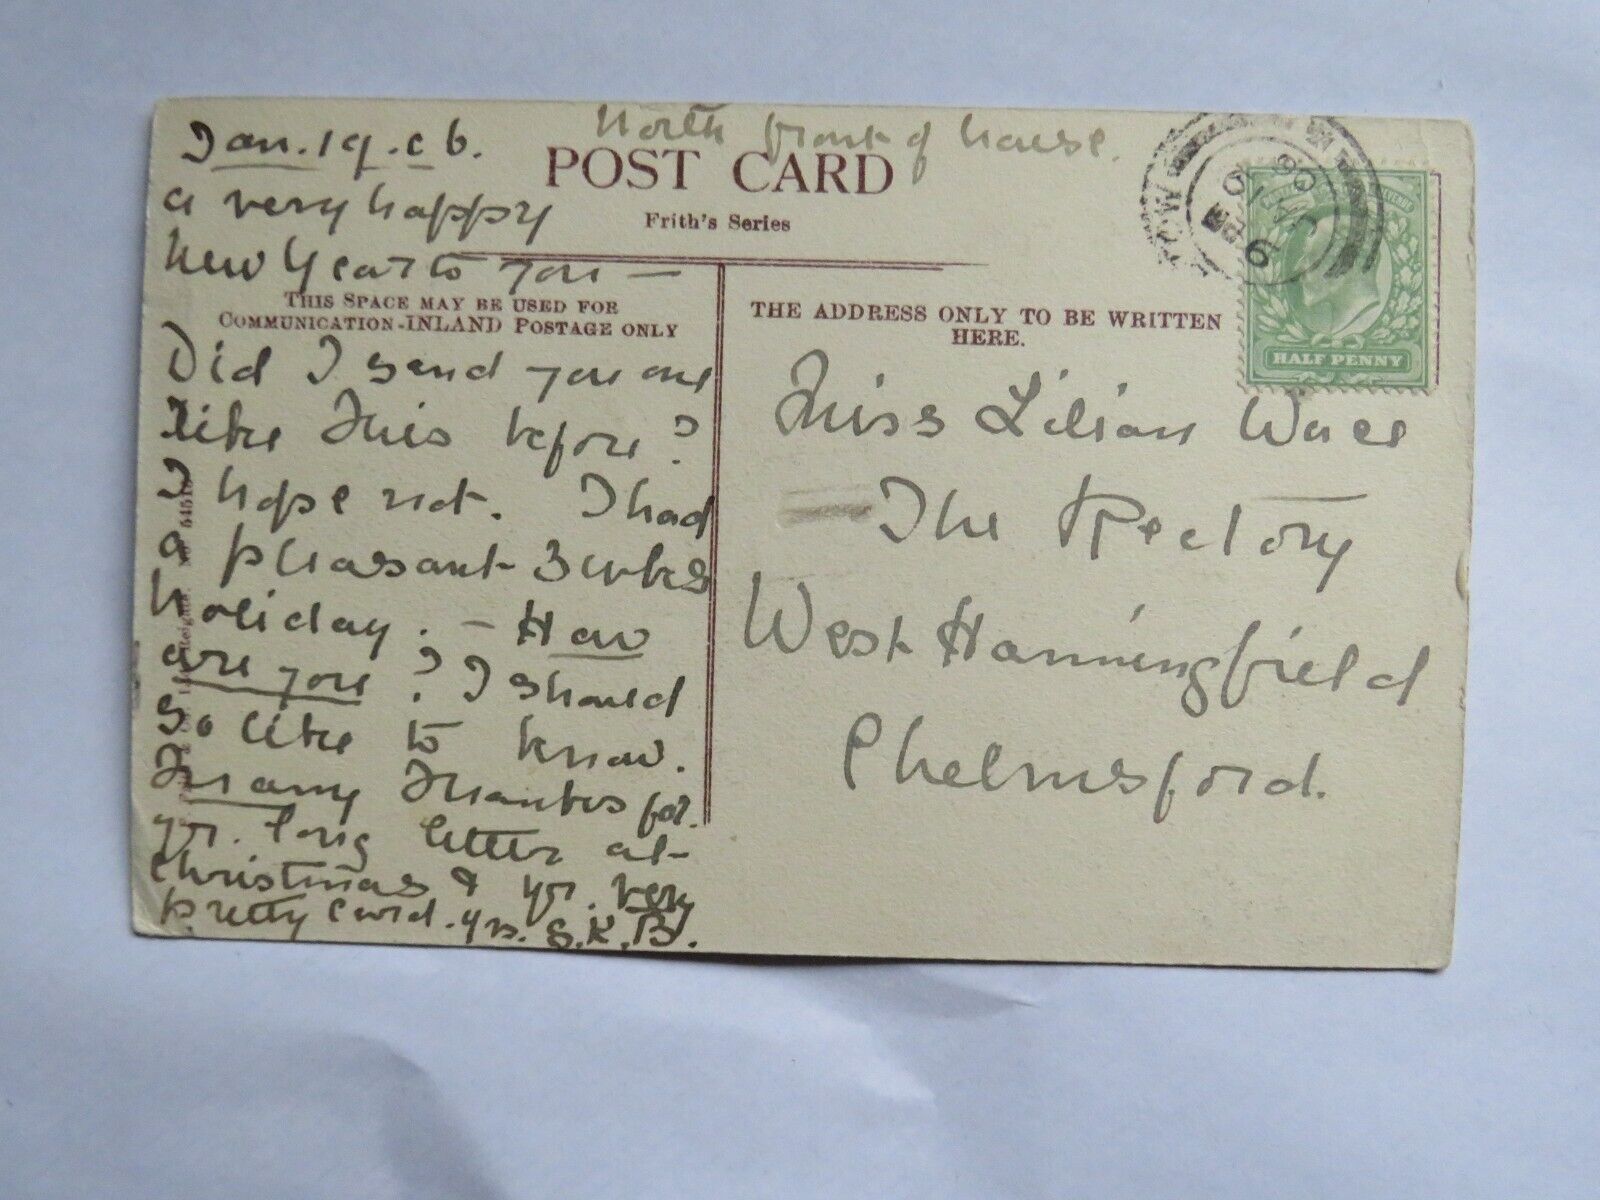 Jan. 19. 06.
North front of house.
POST CARD
Frith's Series
a very happy
New Year to you —
THIS SPACE MAY BE USED FOR
COMMUNICATION-INLAND POSTAGE ONLY
Did I send you one
like this before?
I hope not. I had
a pleasant 3 wks
holiday. - How
are you? I should
so like to know.
Many thanks for
yr. long letter at
Christmas & yr. very
pretty card. yrs. S.K.B.
THE ADDRESS ONLY TO BE WRITTEN
HERE.
HALF PENNY
Miss Lilian Wace
The Rectory
West Hanningfield
Chelmsford.